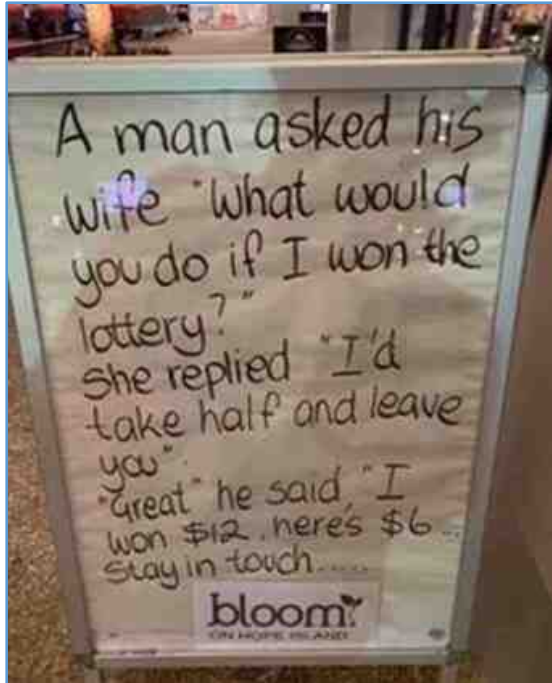 A man asked his
wife "What would
you do if I won the
lottery?"
She replied "I'd
take half and leave
you".
"Great" he said, "I
won $12, here's $6...
Stay in touch.....
bloom
ON HOPE ISLAND